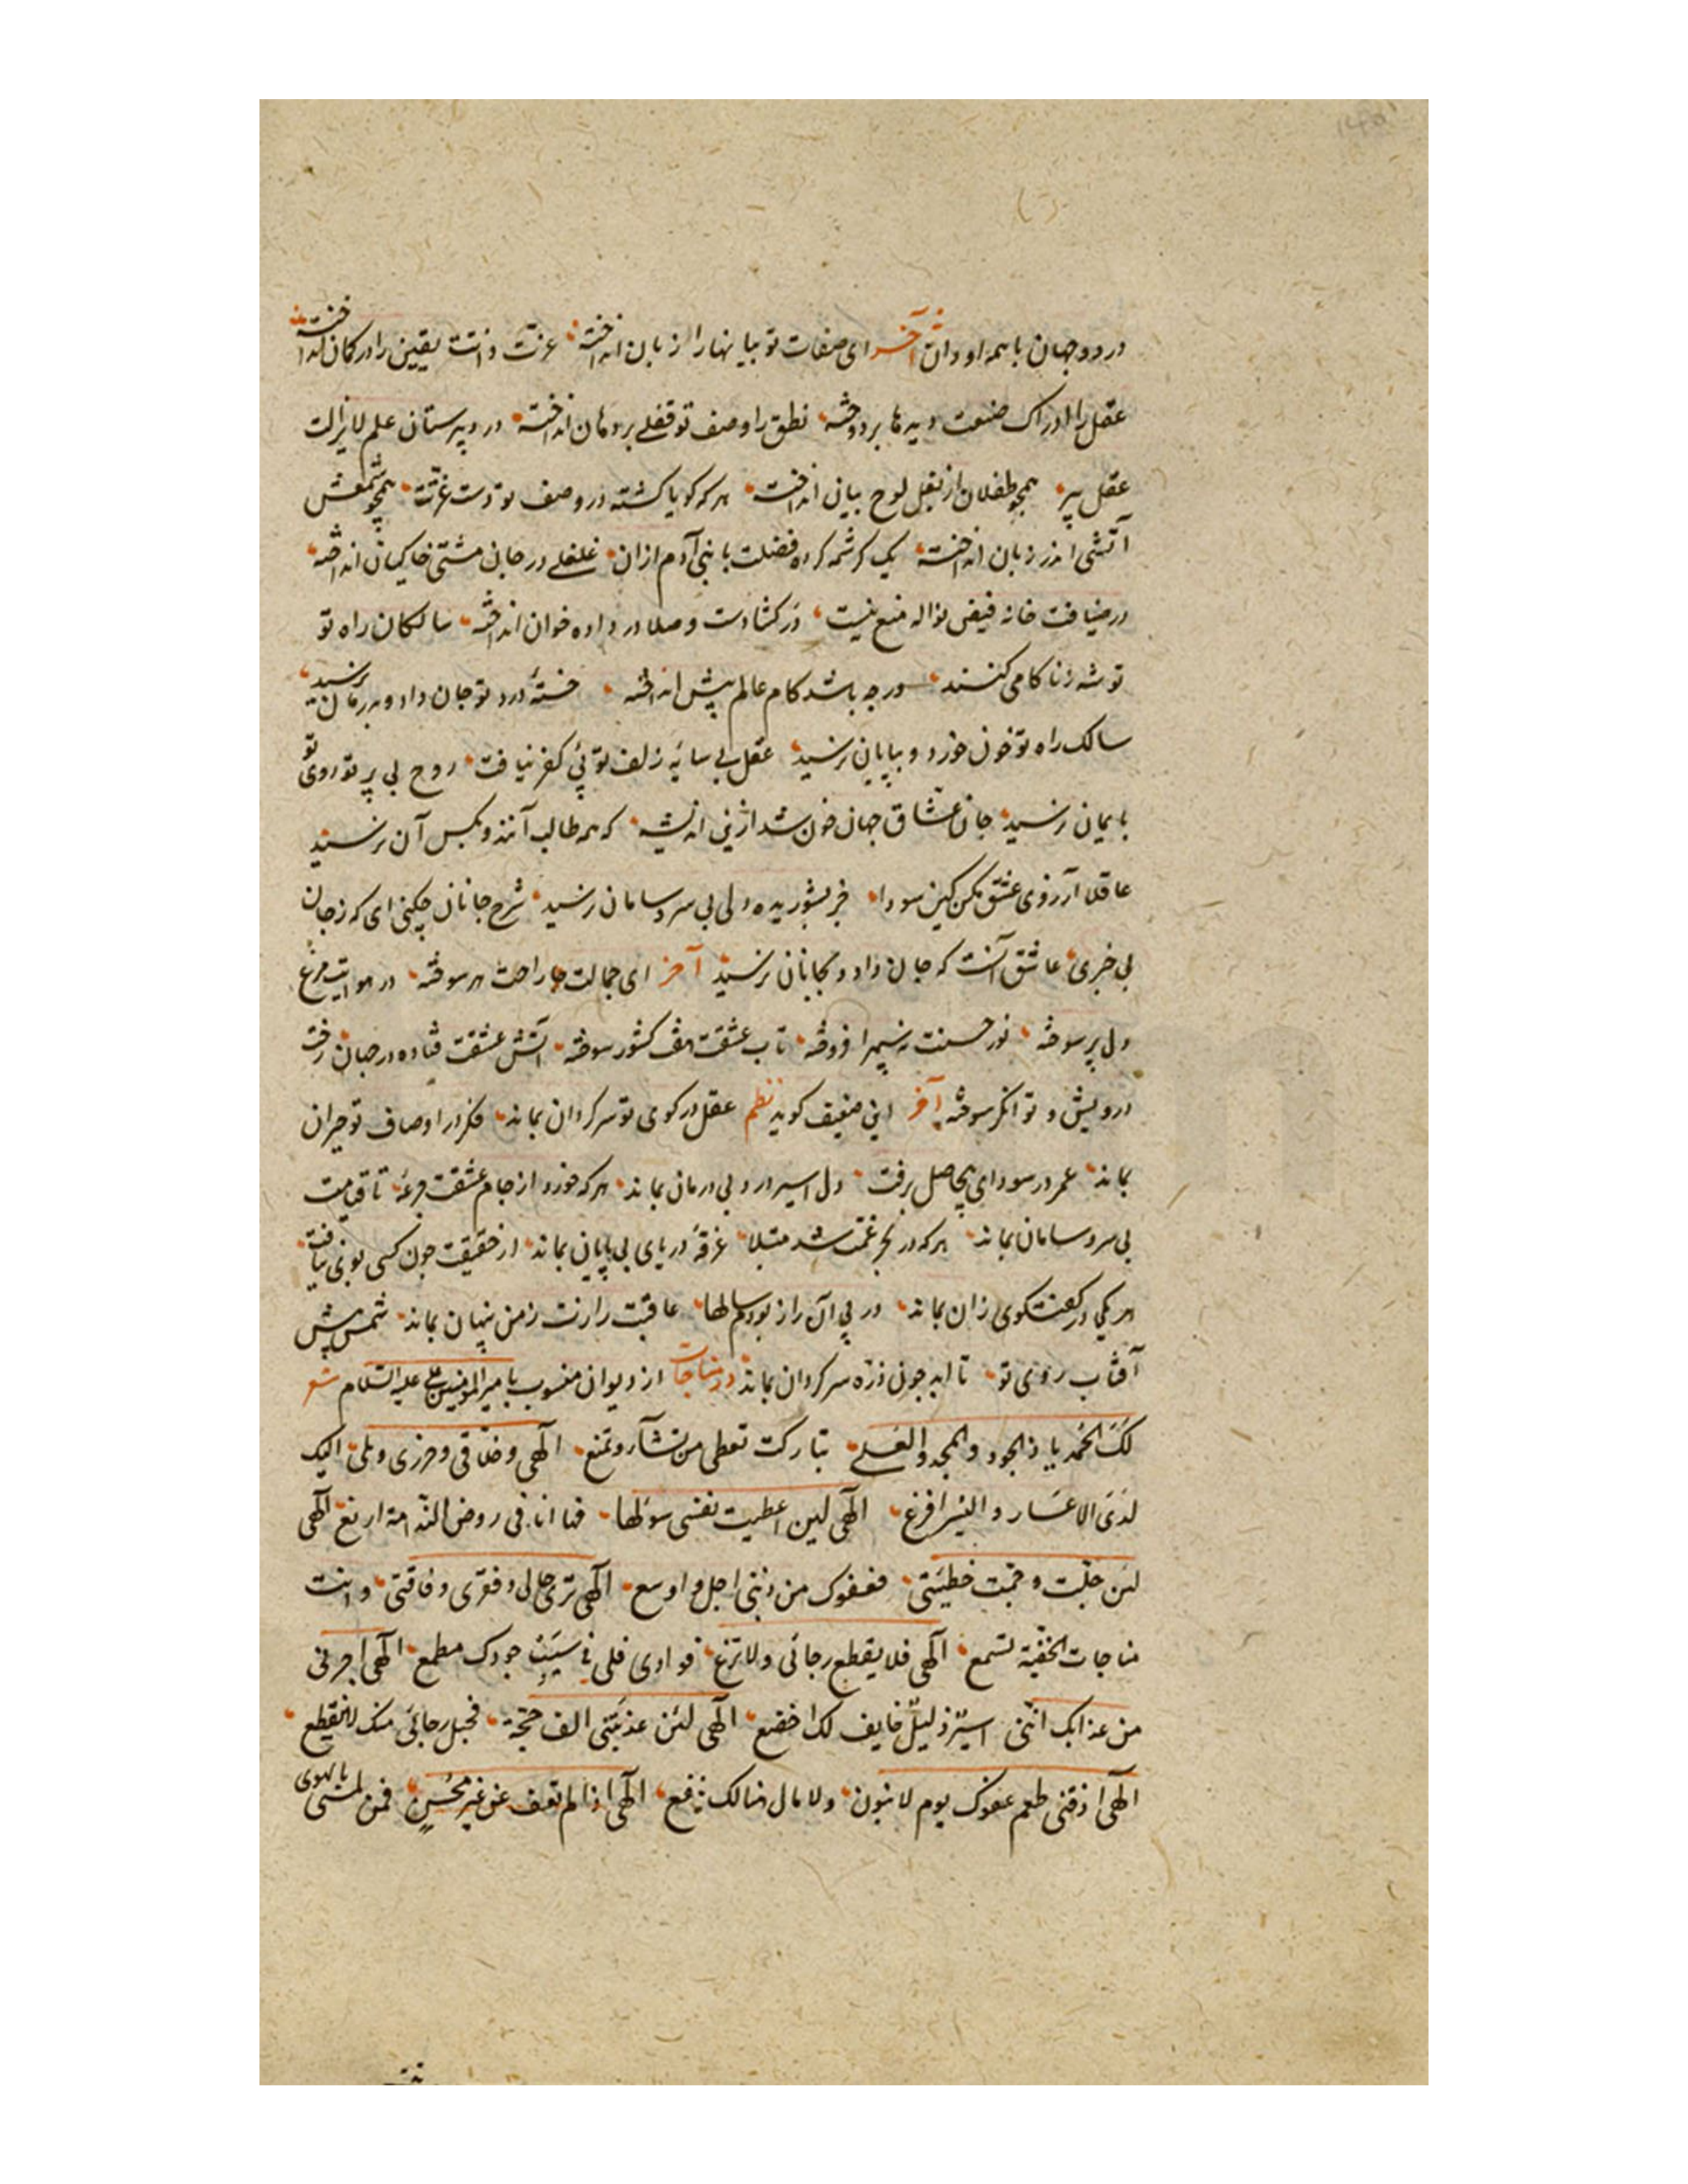 در دو جهان با همه او دان آخر ای صفات تو بیانها را زبان انداخته عزت ذاتت یقین را در کمان انداخته
عقل را ادراک صنعت دیدها بردوخته نطق را وصف تو قفلی بر دهان انداخته در دبیرستان علم لایزالت
عقل پیر همچو طفلان از بغل لوح بیان انداخته هر که کویا کشته در وصف تو دست غیرتت همچو شمعش
آتشی اندر زبان انداخته یک کرشمه کرده فضلت با بنی آدم ازان غلغلی در جان مشتی خاکیان انداخته
در ضیافت خانه فیض نواله منع نیست در کشادست و صلا در داده خوان انداخته سالکان راه تو
توشه ز ناکامی کنند ورچه باشد کام عالم پیش انداخته خستهٔ درد تو جان داد و بدرمان نرسید
سالک راه تو خون خورد و بپایان نرسید عقل بی سایهٔ زلف تو پی کفر نیافت روح بی پرتو روی تو
بایمان نرسید جان عشاق جهان خون شد ازین اندیشه که همه طالب آنند و بکس آن نرسید
عاقلا آرزوی عشق مکن کین سودا جز بشوریده دلی بی سر و سامان نرسید شرح جانان چکنی ای که ز جان
بی خبری عاشق آنست که جان داد و بجانان نرسید آخر ای جمالت راحت هر سوخته در هوایت مرغ
دل پر سوخته نور حسنت نه سپهر افروخته تاب عشقت هفت کشور سوخته آتش عشقت فتاده در جهان رخت
درویش و توانکر سوخته آخر این ضعیف کوید نظم عقل در کوی تو سرکردان بماند فکر در اوصاف تو حیران
بماند عمر در سودای بیحاصل برفت دل اسیر درد بی درمان بماند هر که خورد از جام عشقت جرعهٔ تا قیامت
بی سر و سامان بماند هر که در بحر غمت شد مبتلا غرقهٔ دریای بی پایان بماند از حقیقت چون کسی بویی نیافت
هر یکی در کفتکوی زان بماند در پی آن راز بودم سالها عاقبت رازت ز من پنهان بماند شمس پیش
آفتاب روی تو تا ابد چون ذره سرکردان بماند در مناجات از دیوان منسوب بامیر المومنین علی علیه السلام شعر
لَکَ الحَمد یا ذا الجود والمجد والعُلی تبارکت تعطی من تشآء وتمنع الٓهی وخلّاقی وحرزی و الیک
لدَی الاعسَار والیُسر افزع الٓهی لین اعطیت نفسی سؤلها فها انا فی روض الندامة ارتع الٓهی
لئن جلّت وجمّت خطیَتی فعفوک من ذنبی اجل واوسع الٓهی تری حالی وفقری وفاقتی وانت
مناجات الخفیّة تسمع الٓهی فلا یقطع رجائی ولا تزغ فوادی فلی فی سَیْبِ جودک مطمع الٓهی اجرنی
من عذابک اننی اسیر ذلیل خایف لک اخضع الٓهی لئن عذبَتنی الف حجّة فحبل رجائی منک لا ینقطع
الٓهی اذقنی طعم عفوک یوم لا بنون ولا مال هنالک ینفع الٓهی اذا لم تعف عن غیر محُسِنٍ فمن لمسیٔ بالهوی